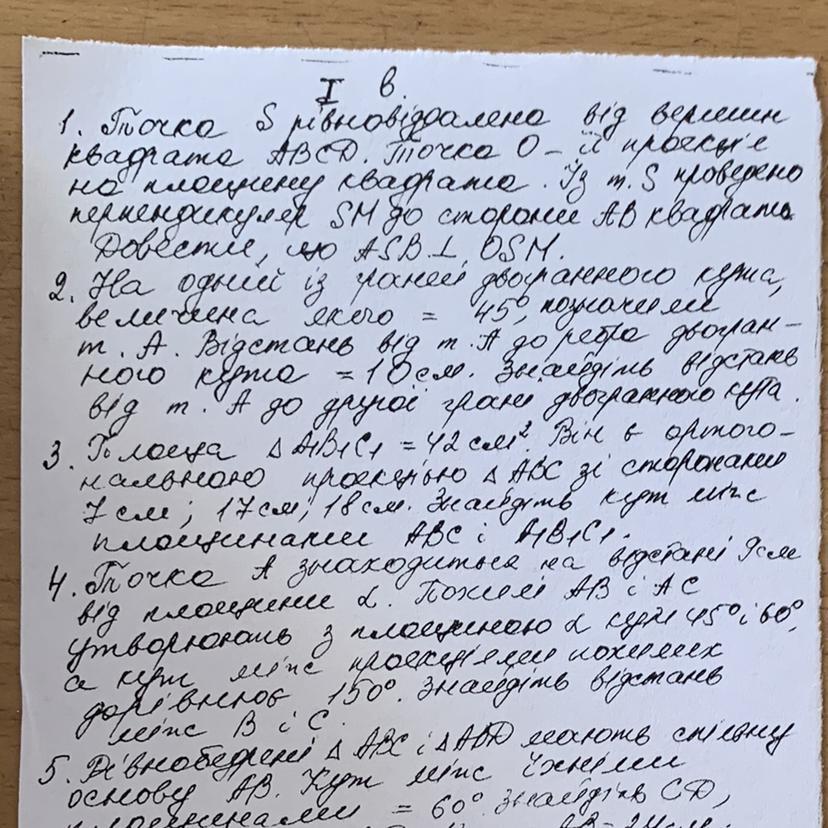 I в.
1. Точка S рівновіддалена від вершин
квадрата ABCD. Точка О – її проекція
на площину квадрата. Із т. S проведено
перпендикуляр SM до сторони AB квадрата.
Довести, що ASB ⊥ OSM.
2. На одній із граней двогранного кута,
величина якого = 45°, позначили
т. А. Відстань від т. А до ребра двогран-
ного кута = 10 см. Знайдіть відстань
від т. А до другої грані двогранного кута.
3. Площа △ A1B1C1 = 42 см². Він є ортого-
нальною проекцією △ ABC зі сторонами
7 см; 17 см; 18 см. Знайдіть кут між
площинами ABC і A1B1C1.
4. Точка А знаходиться на відстані 9 см
від площини α. Похилі AB і AC
утворюють з площиною α кути 45° і 60°,
а кут між проекціями похилих
дорівнює 150°. Знайдіть відстань
між B і C.
5. Рівнобедрені △ ABC і △ ABD мають спільну
основу AB. Кут між їхніми
площинами = 60°. Знайдіть CD,